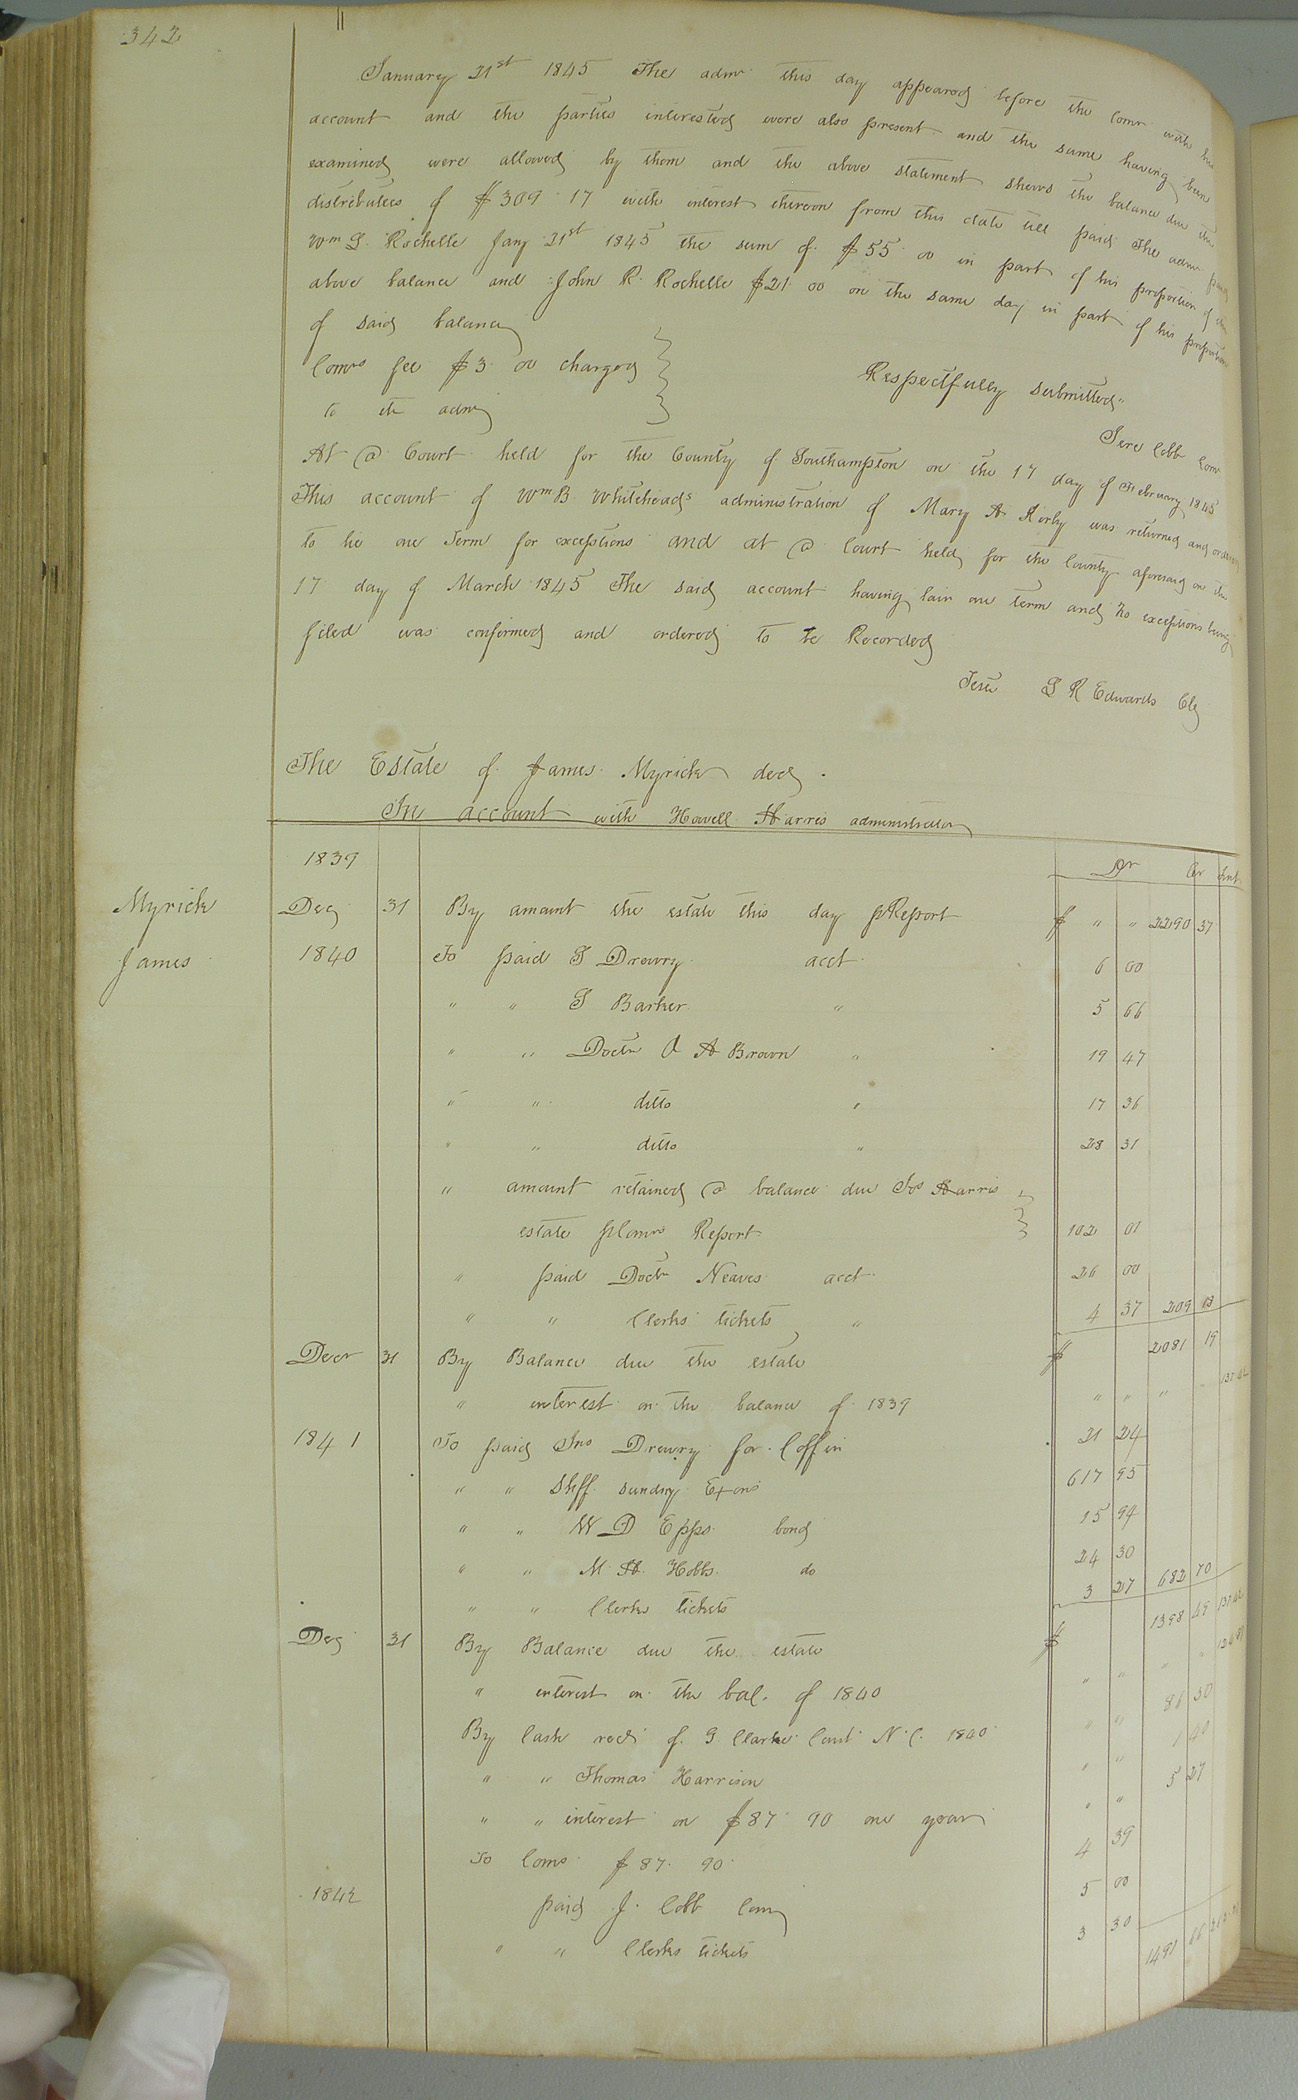 342
January 21st 1845 The admr this day appeared before the Comr with his
account and the parties interested were also present and the same having been
examined were allowed by them and the above statement shews the balance due the
distributees of $309 17 with interest thereon from this date till paid The admr paid
Wm S. Rochelle Jany 21st 1845 the sum of $55 00 in part of his proportion of the
above balance and John R. Rochelle $21 00 on the same day in part of his proportion
of said balance
Comrs fee $3 00 charged
to the admr
Respectfully submitted
Jere Cobb Comr
At a Court held for the County of Southampton on the 17 day of February 1845
This account of Wm B Whiteheads administration of Mary A Kirby was returned and ordered
to lie one Term for exceptions and at a Court held for the County aforesaid on the
17 day of March 1845 The said account having lain one term and no exceptions being
filed was confirmed and ordered to be Recorded
Teste S R Edwards Clk
The Estate of James Myrick decd.
In account with Howell Harris administrator
1839 Dr Cr Int
Myrick James
Dec 31 By amount the estate this day pReport $ " " 2290 37
1840 To paid S Drewry acct 6 00
" " S Barker " 5 66
" " Doctr A Brown " 19 47
" " ditto " 17 36
" " ditto " 28 31
" amount retained a balance due Jos Harris
estate pComrs Report 102 01
" paid Doctr Neaves acct 26 00
" " Clerks tickets " 4 37 209 13
Decr 31 By Balance due the estate $ 2081 19
" interest on the balance of 1839 " " " 137 42
1841 To paid Jno Drewry for Coffin 21 24
" " Shff sundry Exons 617 95
" " W D Epps bond 15 94
" " M. H. Hobbs do 24 30
" " Clerks tickets 3 27 682 70
Dec 31 By Balance due the estate $ 1398 49 137 42
" interest on the bal. of 1840 " " " "
By Cash recd of G Clarke Const N.C. 1840 " " 86 50
" " Thomas Harrison " " 1 40
" " interest on $87 90 one year " " 5 27
To Coms $87 90 4 39
1842 paid J. Cobb Com 5 00
" " Clerks tickets 3 30 1491 66